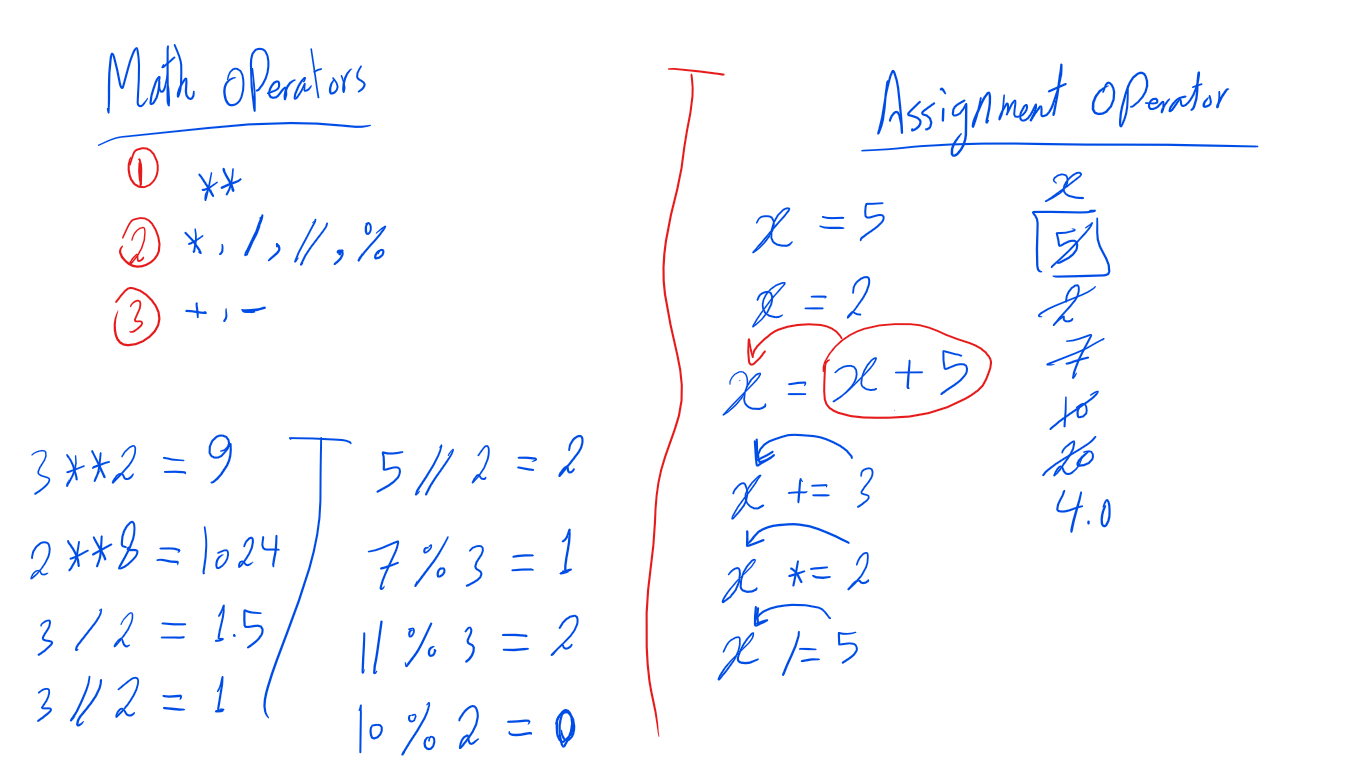 Math Operators
① **
② *, /, //, %
③ +, -
3**2 = 9
2**8 = 1024
3 / 2 = 1.5
3 // 2 = 1
5 // 2 = 2
7 % 3 = 1
11 % 3 = 2
10 % 2 = 0
Assignment Operator
x = 5
x = 2
x = x + 5
x += 3
x *= 2
x /= 5
x
5
2
7
10
20
4.0